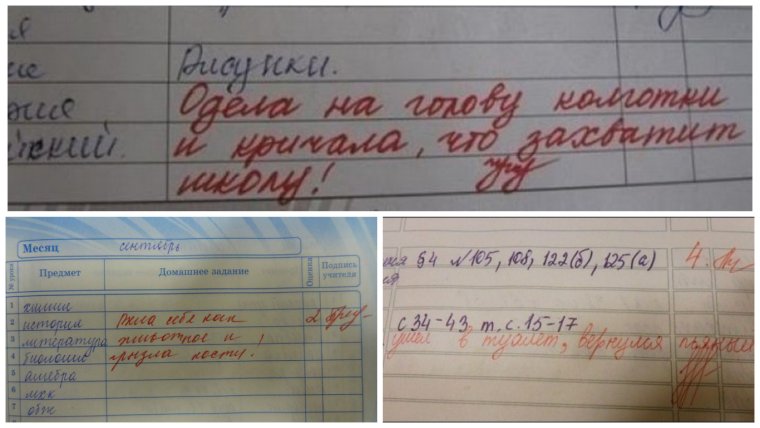 Рисунки.
Одела на голову колготки
и кричала, что захватит
школу!
Месяц сентябрь
№ урока Предмет Домашнее задание Оценка Подпись учителя
1 химия
2 история Вела себя как 2
3 литература животное и
4 биология грызла кости!
5 алгебра
6 мхк
7 обж
§4 №105, 108, 122(б), 125(а) 4.
с 34-43 т. с. 15-17
ушел в туалет, вернулся пьяный